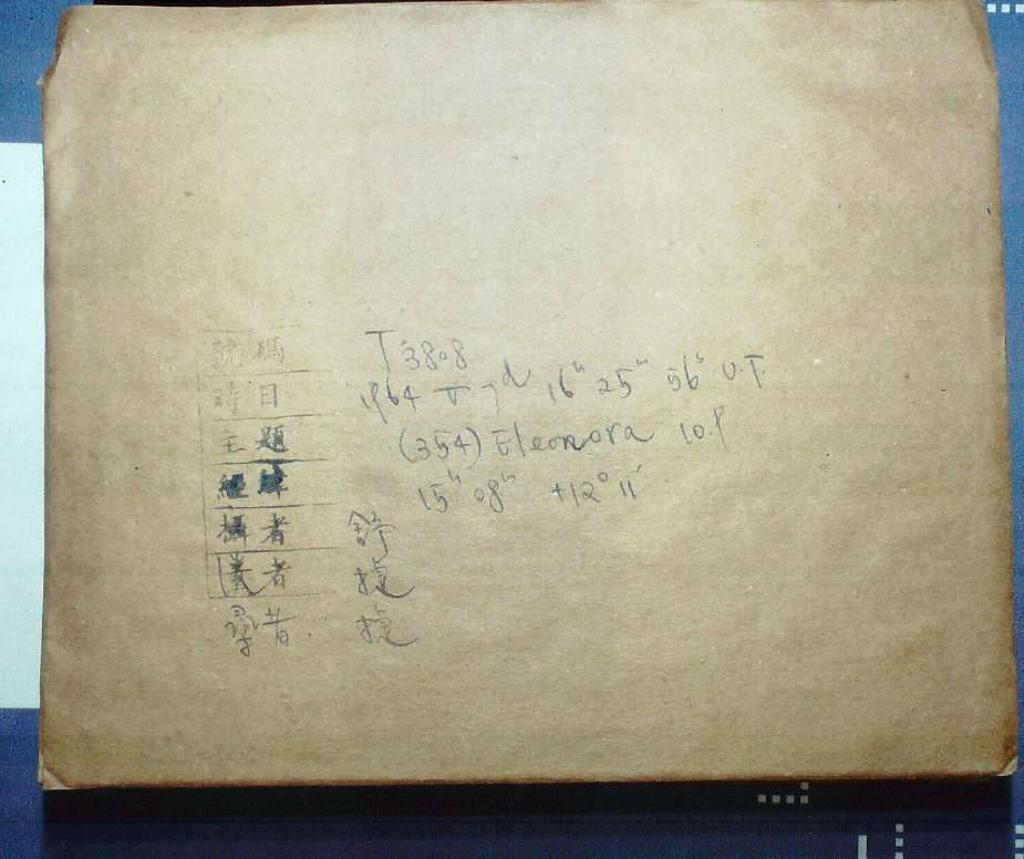 號碼 T 3808
時日 1964 V 7d 16h 25m 56s U.T.
主題 (354) Eleonora 10.9
經緯 15h 08m +12° 11'
攝者 舒
者 捷
尋者 捷